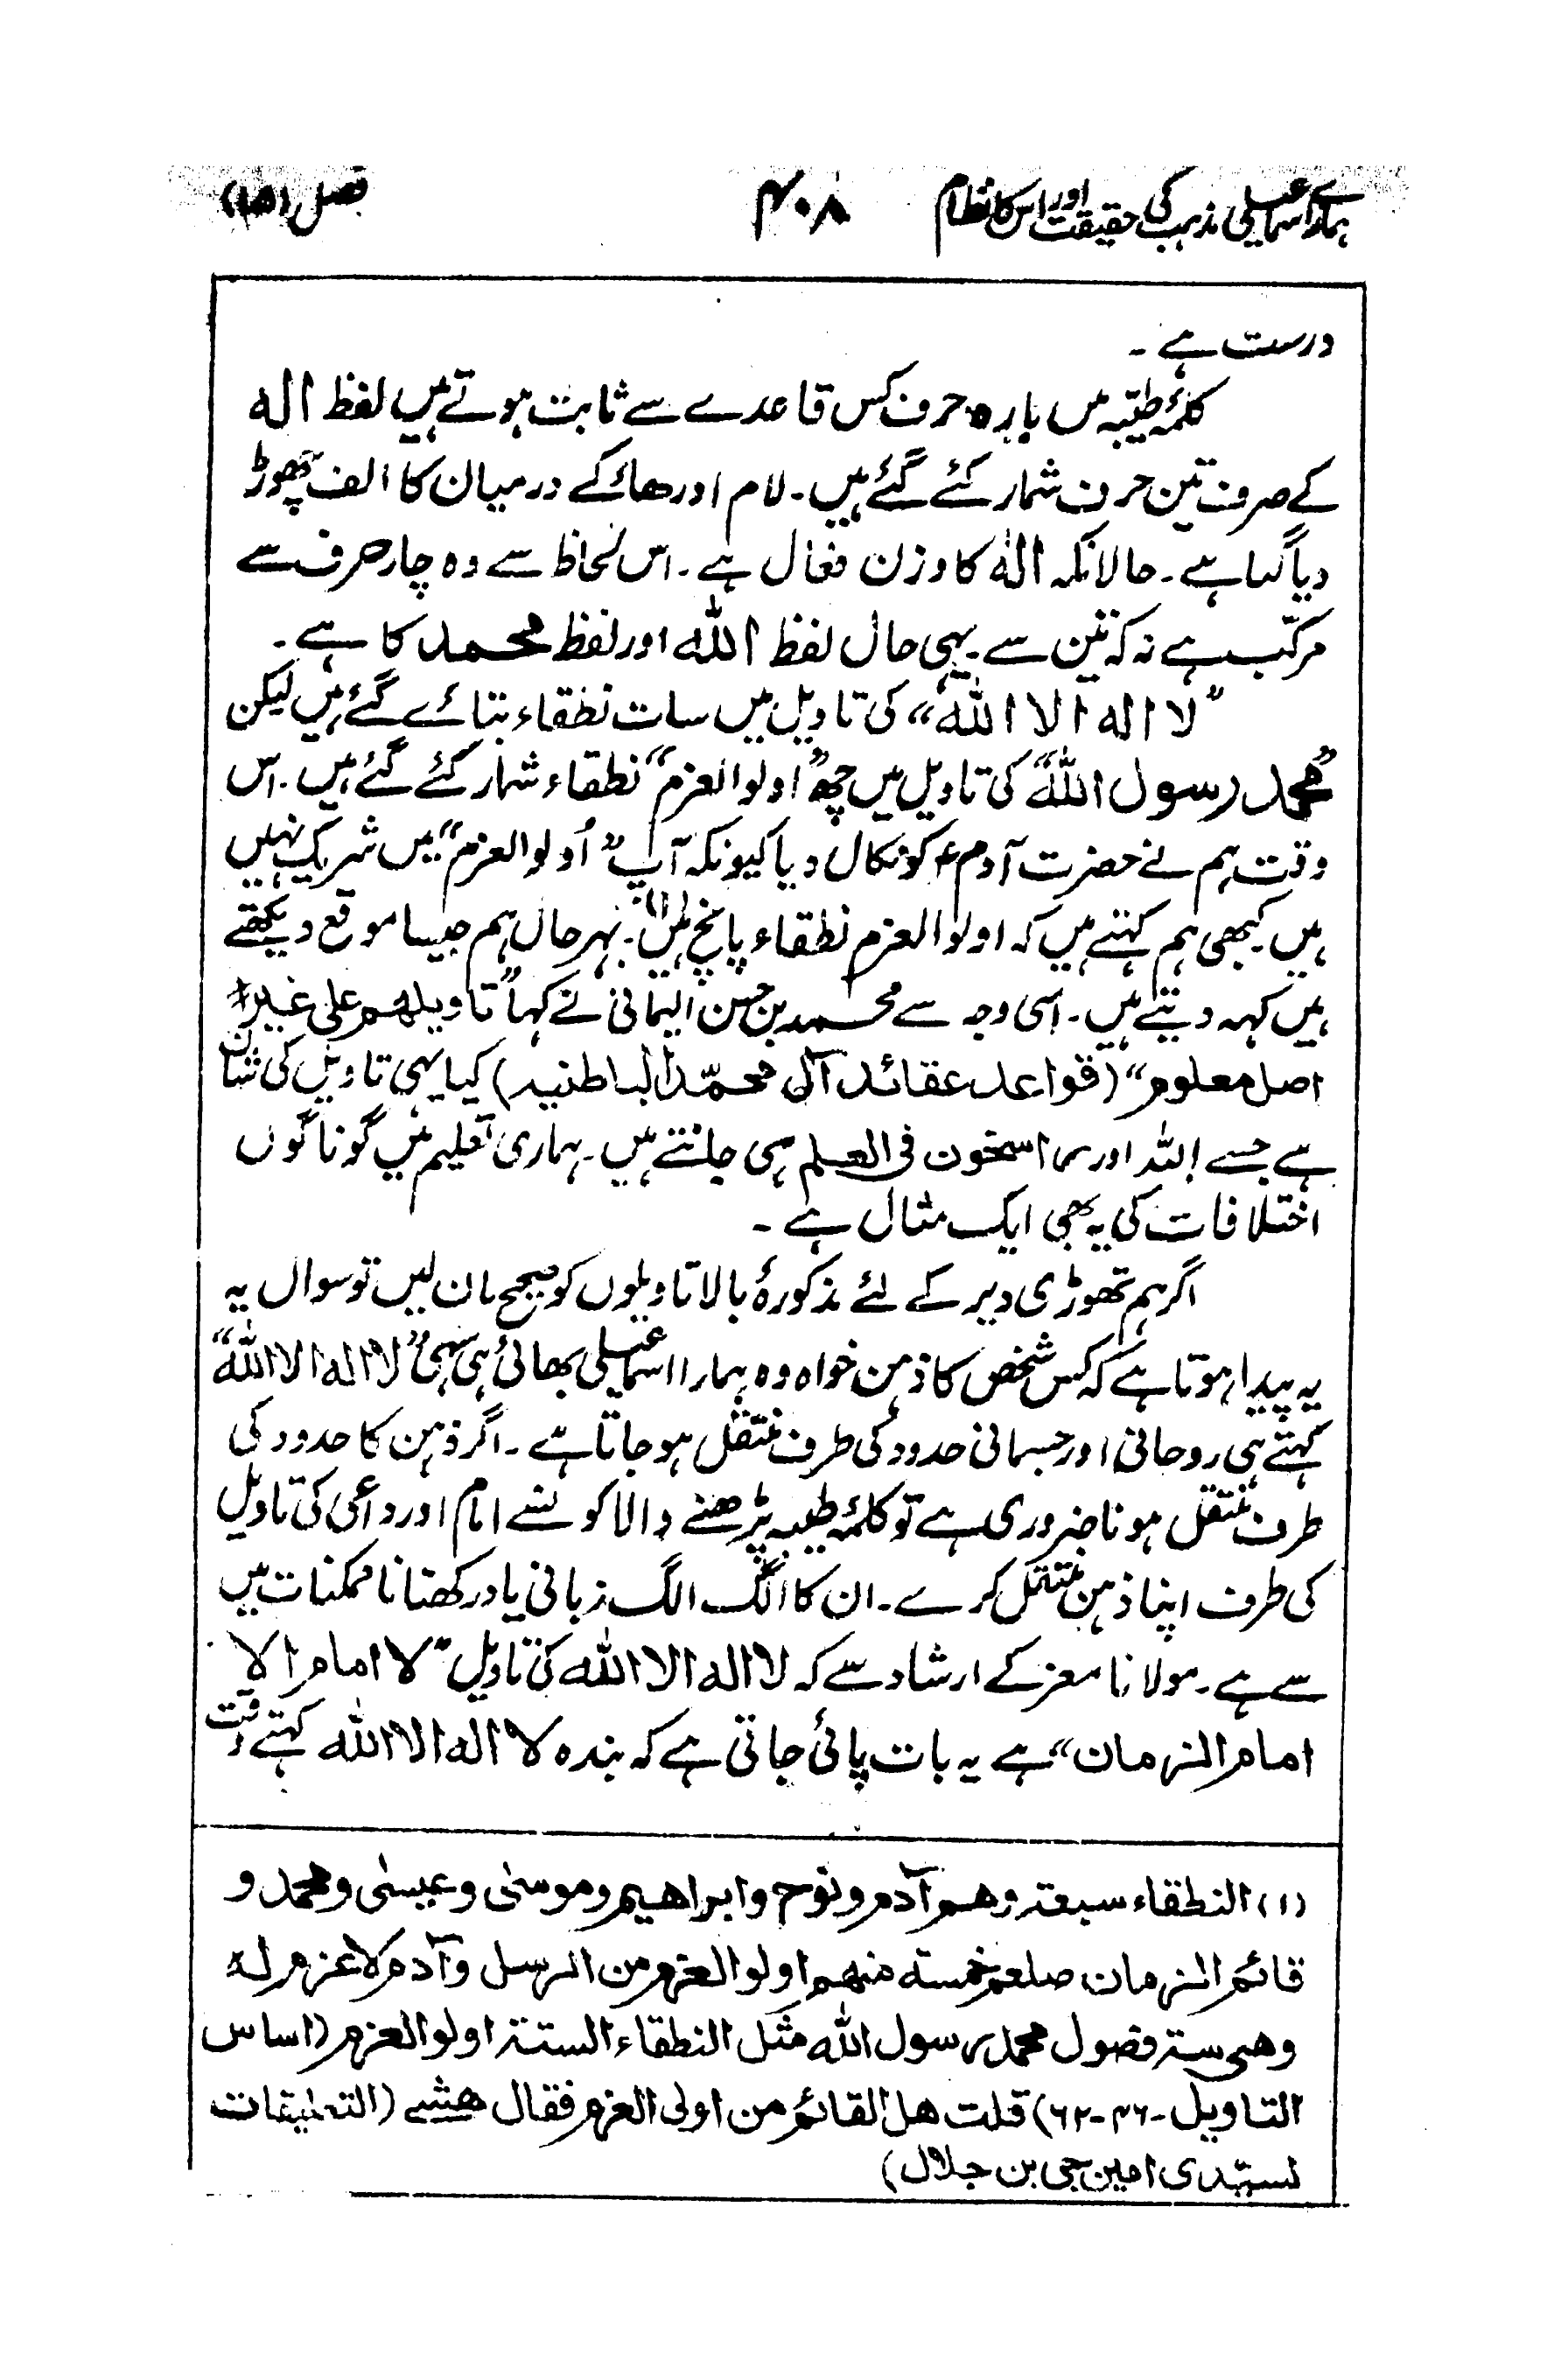 ہمارے اسماعیلی مذہب کی حقیقت اور اس کا نظام ۴۰۸ فصل (۱۵)
درست ہے ۔
کلمۂ طیّبہ میں بارہ حرف کس قاعدے سے ثابت ہوتے ہیں لفظ الہ
کے صرف تین حرف شمار کئے گئے ہیں ۔ لام اور ھاء کے درمیان کا الف چھوڑ
دیا گیا ہے ۔ حالانکہ الٰہ کا وزن فعال ہے ۔ اس لحاظ سے وہ چار حرف سے
مرکّب ہے نہ کہ تین سے ۔ یہی حال لفظ اللّٰہ اور لفظ محمد کا ہے ۔
”لا الہ الا اللّٰہ“ کی تاویل میں سات نطقاء بتائے گئے ہیں لیکن
”محمد رسول اللّٰہ“ کی تاویل میں چھ ”اولوا لعزم“ نطقاء شمار کئے گئے ہیں ۔ اس
وقت ہم نے حضرت آدم ؑ کو نکال دیا کیونکہ آپ ”اُولو العزم“ میں شریک نہیں
ہیں کبھی ہم کہتے ہیں کہ اولوا لعزم نطقاء پانچ ہیں (۱) ۔ بہر حال ہم جیسا موقع دیکھتے
ہیں کہہ دیتے ہیں ۔ اسی وجہ سے محمد بن حسن الیمانی نے کہا ”تاویلھم علی غیر
اصل معلوم“ (قواعد عقائد آل محمّد الباطنیہ) کیا یہی تاویل کی شان
ہے جسے اللہ اور راسخون فی العلم ہی جانتے ہیں ۔ ہماری تعلیم میں گوناگوں
اختلافات کی یہ بھی ایک مثال ہے ۔
اگر ہم تھوڑی دیر کے لئے مذکورۂ بالا تاویلوں کو صحیح مان لیں تو سوال یہ
یہ پیدا ہوتا ہے کہ کس شخص کا ذہن خواہ وہ ہمارا اسماعیلی بھائی ہی سہی ”لا الہ الا اللّٰہ“
کہتے ہی روحانی اور جسمانی حدود کی طرف منتقل ہو جاتا ہے ۔ اگر ذہن کا حدود کی
طرف منتقل ہونا ضروری ہے تو کلمۂ طیبہ پڑھنے والا کونسے امام اور داعی کی تاویل
کی طرف اپنا ذہن منتقل کرے ۔ ان کا الگ الگ زبانی یاد رکھنا ناممکنات میں
سے ہے ۔ مولانا معز کے ارشاد سے کہ لا الہ الا اللّٰہ کی تاویل ”لا امام الا
امام الزمان“ ہے یہ بات پائی جاتی ہے کہ بندہ لا الہ الا اللّٰہ کہتے وقت
(۱) النطقاء سبعۃ وھم آدم و نوح وابراھیم وموسیٰ وعیسیٰ ومحمد و
قائم الزمان صلعم خمسۃ منھم اولوا لعزم من الرسل وآدم لا عزم لہ
وھی ستۃ فصول محمد رسول اللّٰہ مثل النطقاء الستۃ اولوا لعزم (اساس
التاویل ـ ۴۶ ـ ۶۲) قلت ھل القائم من اولی العزم فقال ھشے (التعلیقات
لسیّدی امین جی بن جلال)